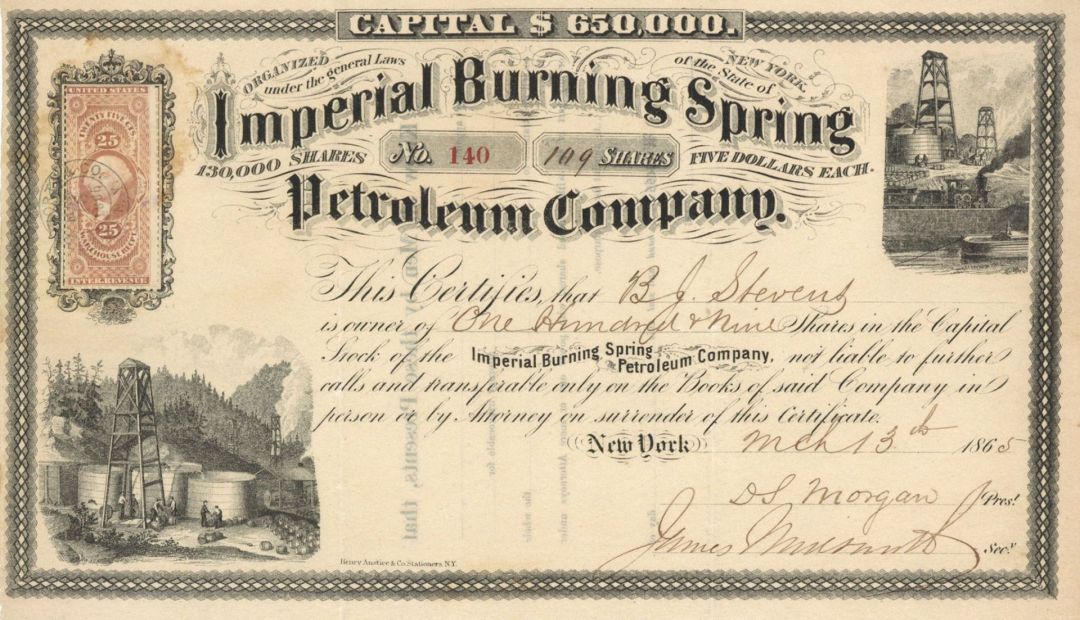 CAPITAL $ 650,000.
ORGANIZED under the general Laws of the State of NEW YORK.
Imperial Burning Spring
130,000 SHARES No. 140 109 SHARES FIVE DOLLARS EACH.
Petroleum Company.
UNITED STATES
25
25
INTER. REVENUE
This Certifies, that B J. Stevens
is owner of One Hundred & Nine Shares in the Capital
Stock of the Imperial Burning Spring Petroleum Company, not liable to further
calls and transferable only on the Books of said Company in
person or by Attorney on surrender of this Certificate.
New York Mch 13th 1865
DS Morgan Prest
James Sec.y
Henry Anstice & Co. Stationers. N.Y.